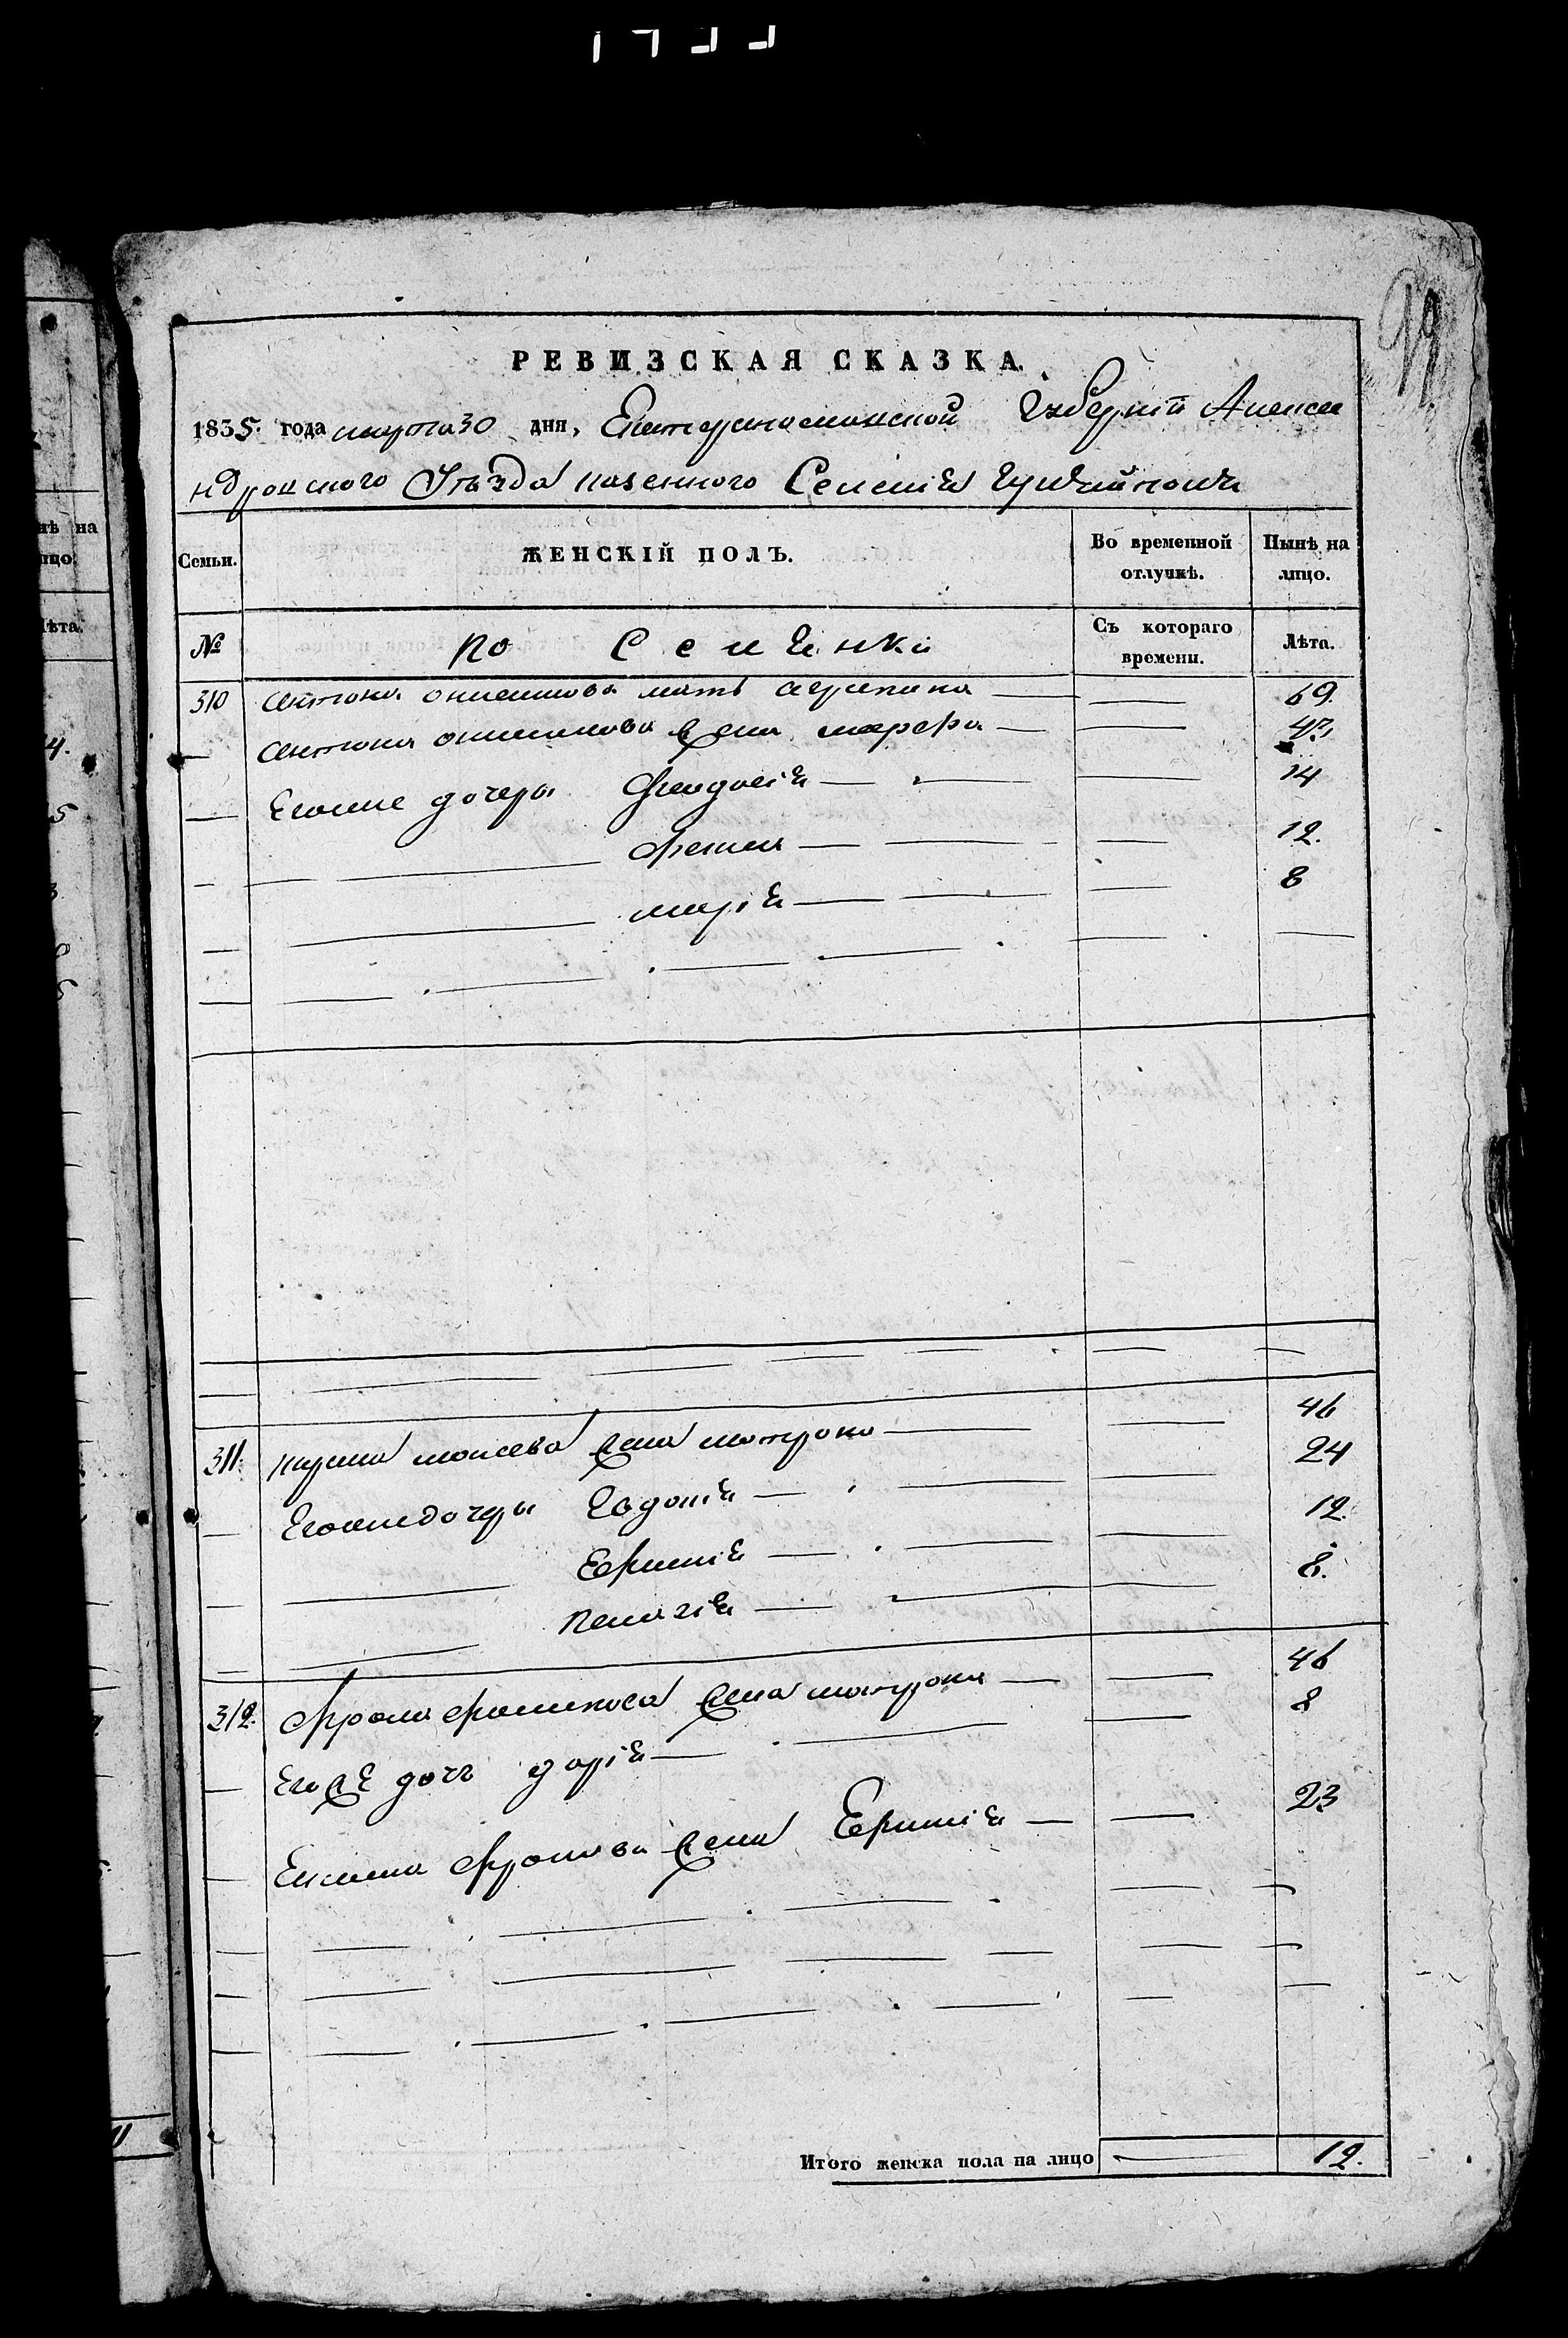 РЕВИЗСКАЯ СКАЗКА.
1835. года марта 30 дня, Екатеринославской Губернии Алекса
ндровского Уезда казенного Селения
Семьи.
ЖЕНСКІЙ ПОЛЪ.
Во временной отлучкѣ.
Нынѣ на лицо.
№
Съ котораго времени.
Лѣта.
310 антона онисимова мать агрипина — — 69.
— антона онисимова жена марфа — — 47.
— Егоже дочери Феодосія — — 14
— Фекла — — 12.
— марія — — 8
311. моисева жена матрона — — 46
— Егоже дочери Евдокія — — 24
— Ефимія — — 12.
— пелагія — — 8.
312. Фрола жена матрона — — 46
— Егоже дочь дарія — — 8
— Екима Фролова жена Ефимія — — 23
Итого женска пола на лицо — 12.